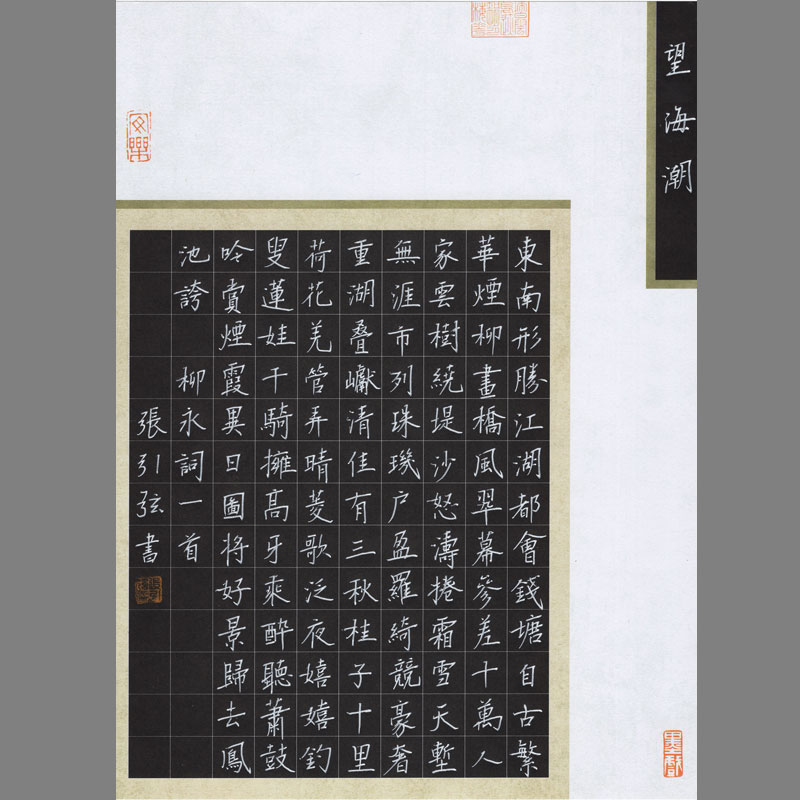 望海潮
東南形勝江湖都會錢塘自古繁
華煙柳畫橋風翠幕參差十萬人
家雲樹繞堤沙怒濤捲霜雪天塹
無涯市列珠璣户盈羅綺競豪奢
重湖叠巘清佳有三秋桂子十里
荷花羌管弄晴菱歌泛夜嬉嬉釣
叟蓮娃千騎擁高牙乘醉聽蕭鼓
吟賞煙霞異日圖將好景歸去鳳
池誇 柳永詞一首
張引弦書